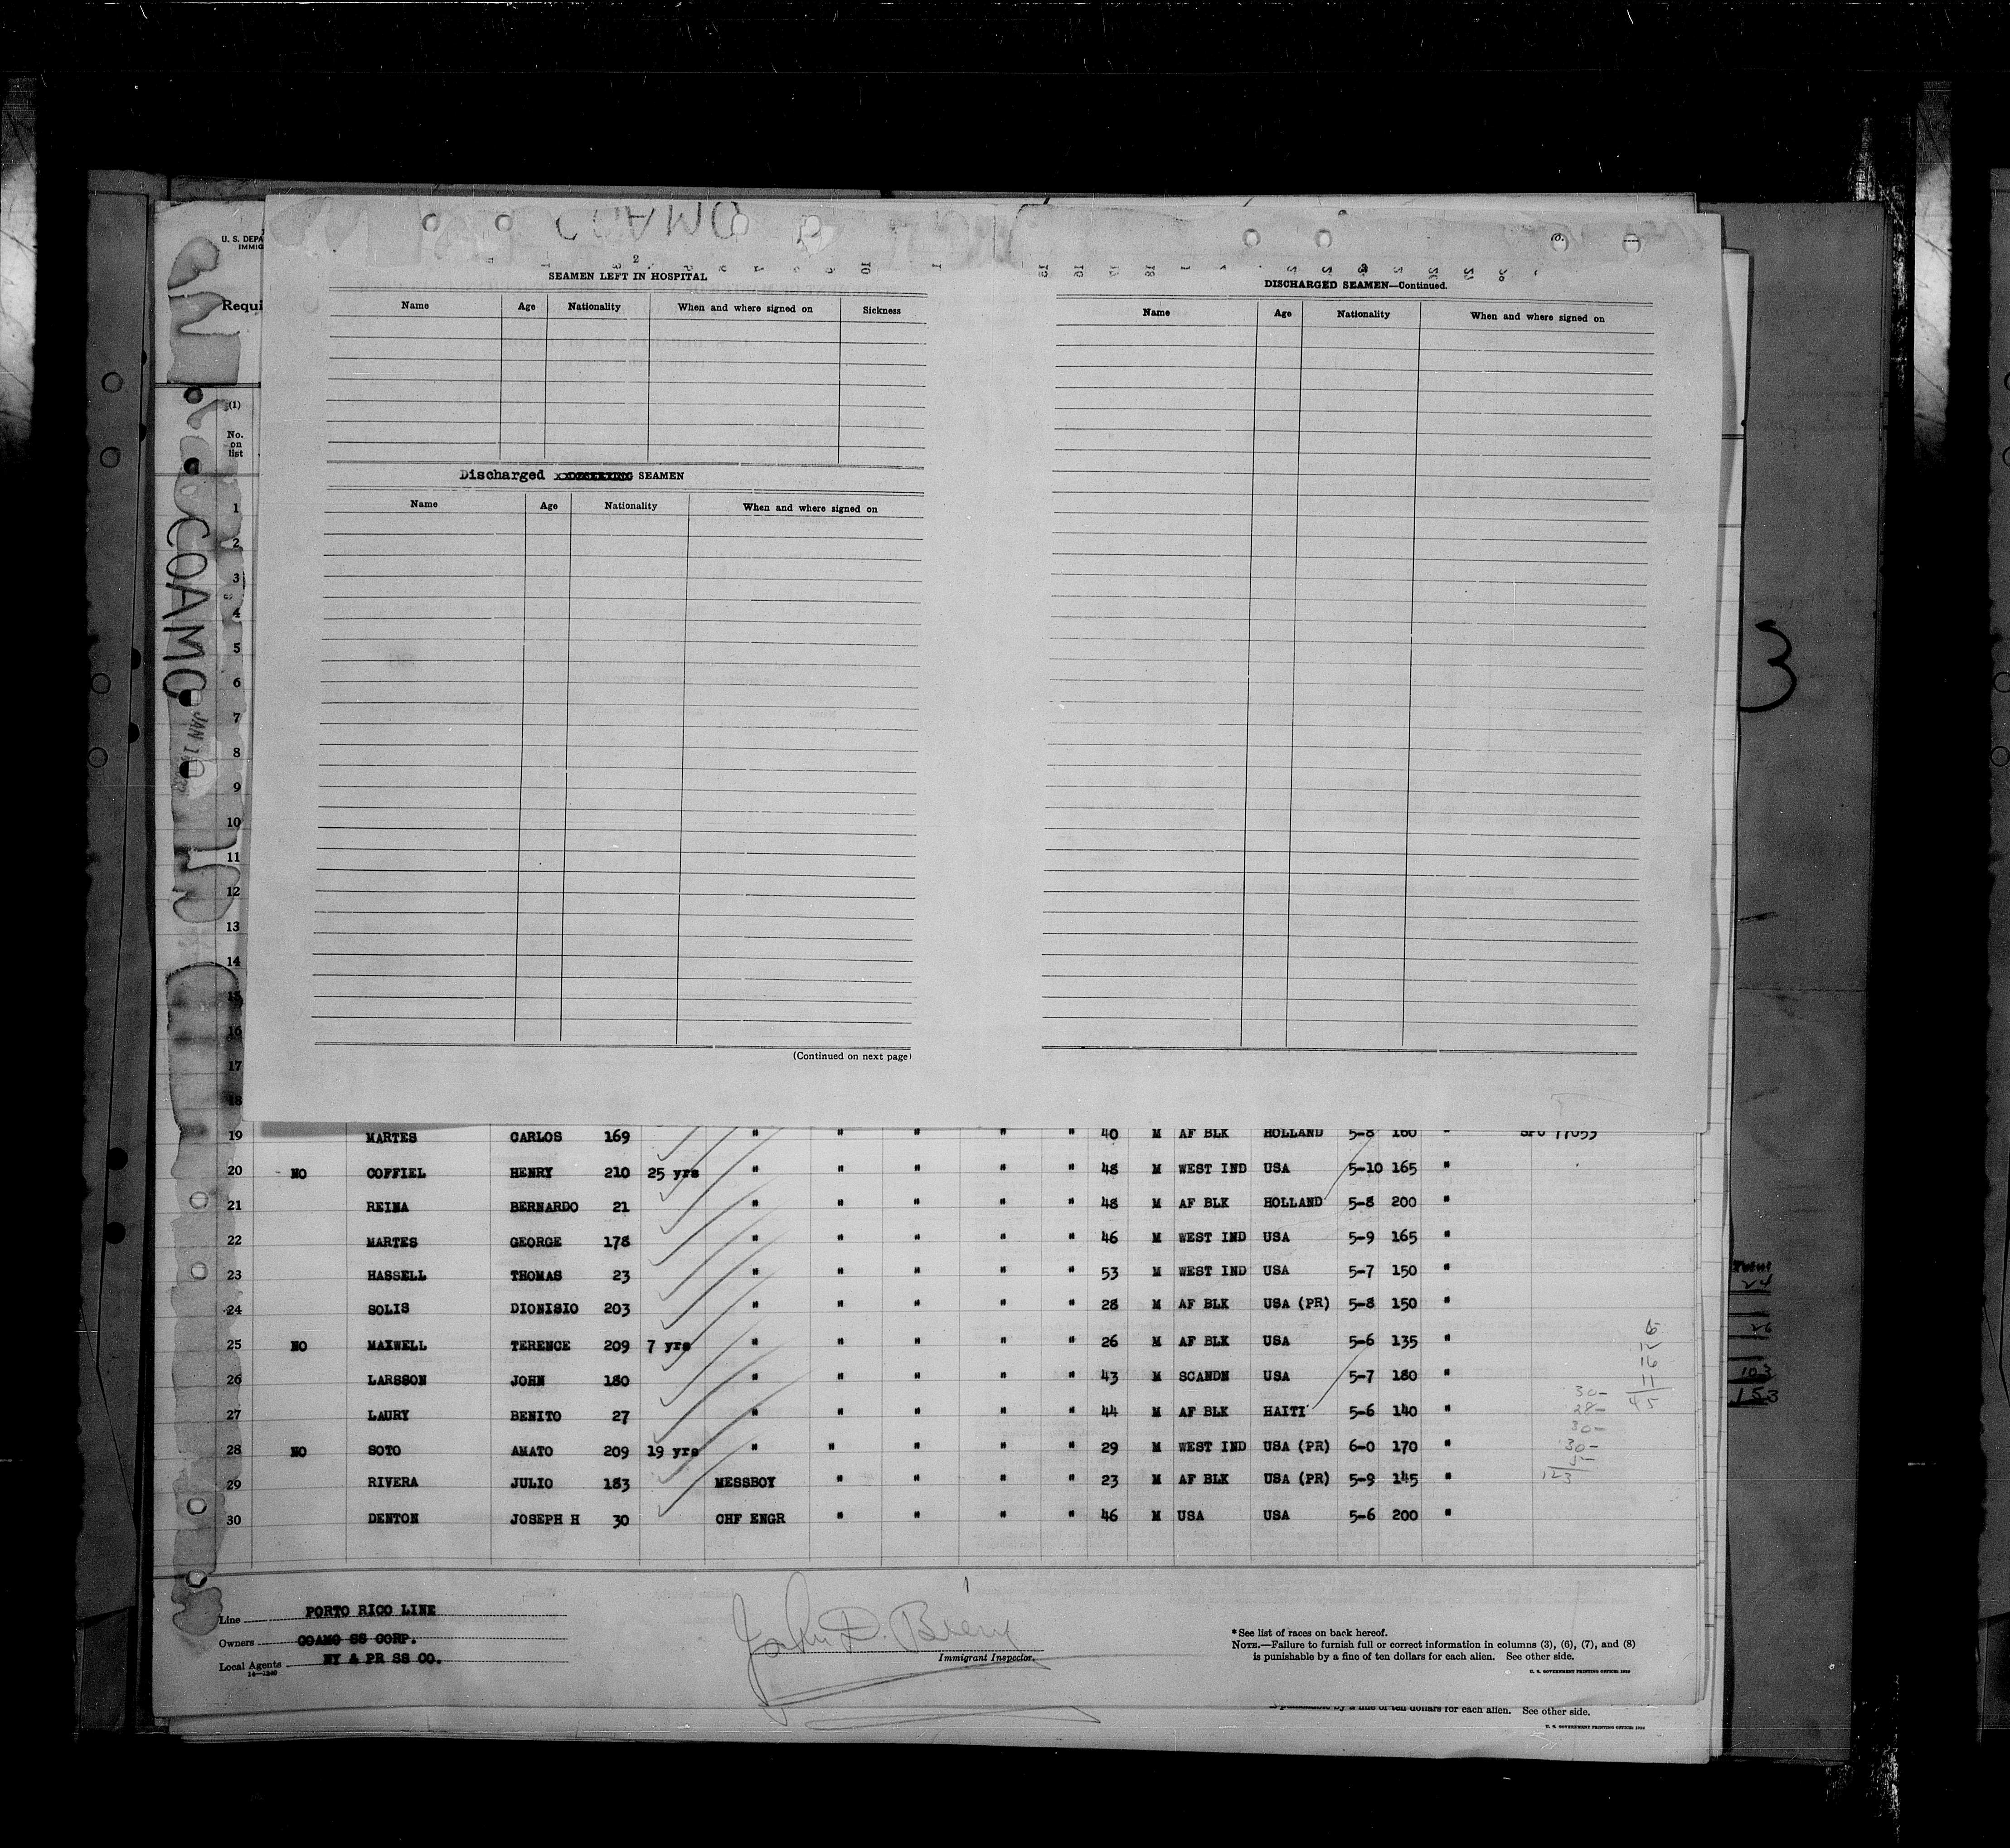 COAMO
U. S. DEPA
IMMIG
Requi
(1)
No.
on
list
COAMO
JAN
2
SEAMEN LEFT IN HOSPITAL
Name Age Nationality When and where signed on Sickness
Discharged SEAMEN
Name Age Nationality When and where signed on
(Continued on next page)
DISCHARGED SEAMEN—Continued.
Name Age Nationality When and where signed on
3
1
2
3
4
5
6
7
8
9
10
11
12
13
14
15
16
17
18
19 MARTES CARLOS 169 " " " " " 40 M AF BLK HOLLAND 5-8 160 "
20 NO COFFIEL HENRY 210 25 yrs " " " " " 48 M WEST IND USA 5-10 165 "
21 REINA BERNARDO 21 " " " " " 48 M AF BLK HOLLAND 5-8 200 "
22 MARTES GEORGE 178 " " " " " 46 M WEST IND USA 5-9 165 "
23 HASSELL THOMAS 23 " " " " " 53 M WEST IND USA 5-7 150 "
24 SOLIS DIONISIO 203 " " " " " 28 M AF BLK USA (PR) 5-8 150 "
25 NO MAXWELL TERENCE 209 7 yrs " " " " " 26 M AF BLK USA 5-6 135 "
26 LARSSON JOHN 180 " " " " " 43 M SCANDN USA 5-7 180 "
27 LAURY BENITO 27 " " " " " 44 M AF BLK HAITI 5-6 140 "
28 NO SOTO AMATO 209 19 yrs " " " " " 29 M WEST IND USA (PR) 6-0 170 "
29 RIVERA JULIO 183 MESSBOY " " " " 23 M AF BLK USA (PR) 5-9 145 "
30 DENTON JOSEPH H 30 CHF ENGR " " " " 46 M USA USA 5-6 200 "
16
11
45
30-
28-
30-
30-
123
24
26
103
153
Line PORTO RICO LINE
Owners COAMO SS CORP.
Local Agents NY & PR SS CO.
Immigrant Inspector.
*See list of races on back hereof.
NOTE.—Failure to furnish full or correct information in columns (3), (6), (7), and (8)
is punishable by a fine of ten dollars for each alien. See other side.
U. S. GOVERNMENT PRINTING OFFICE
is punishable by a fine of ten dollars for each alien. See other side.
U. S. GOVERNMENT PRINTING OFFICE